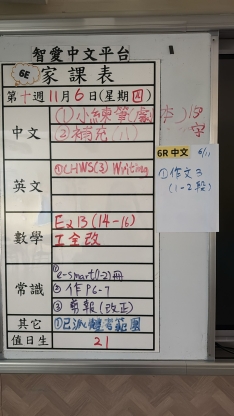 智愛中文平台
6E 家課表
第十週11月6日(星期四)
中文
①小練筆(劇本)10字
②補充(八)
英文
①CHWS(3) Writing
數學
Ex13 (14-16)
工全改
常識
①e-smart(1-2)冊
②作P6-7
③剪報(改正)
其它
①已派
範圍
值日生
21
6R 中文 6/11
①作文3
(1-2段)